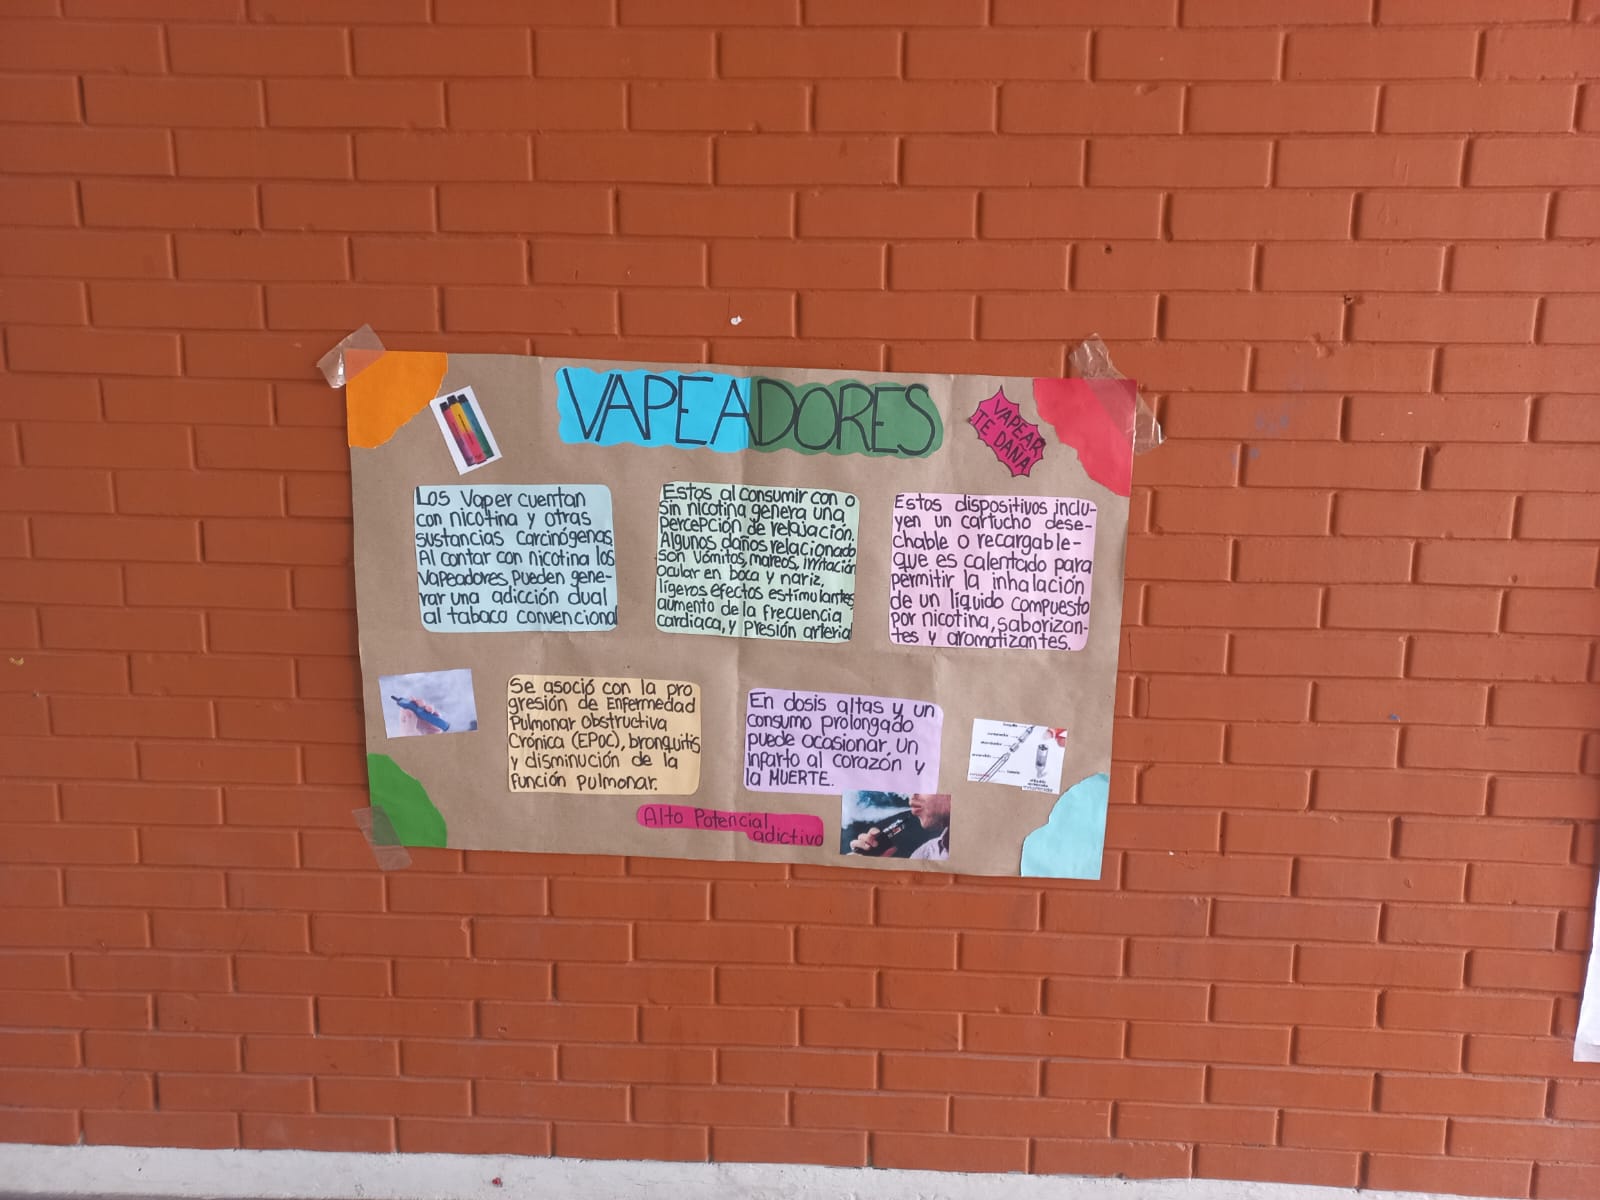 VAPEADORES
VAPEAR
TE DAÑA
Los Vaper cuentan
con nicotina y otras
sustancias carcinógenas.
Al contar con nicotina los
vapeadores, pueden gene-
rar una adicción dual
al tabaco convencional
Estos al consumir con o
sin nicotina genera una
percepción de relajación.
Algunos daños relacionado
son vómitos, mareos, irritación
ocular en boca y nariz,
ligeros efectos estimulantes,
aumento de la frecuencia
cardiaca, y presión arterial
Estos dispositivos inclu-
yen un cartucho dese-
chable o recargable-
que es calentado para
permitir la inhalación
de un líquido compuesto
por nicotina, saborizan-
tes y aromatizantes.
Se asoció con la pro
gresión de Enfermedad
Pulmonar obstructiva
Crónica (EPOC), bronquitis
y disminución de la
función pulmonar.
En dosis altas y un
consumo prolongado
puede ocasionar, un
inparto al corazón y
la MUERTE.
Alto Potencial
adictivo